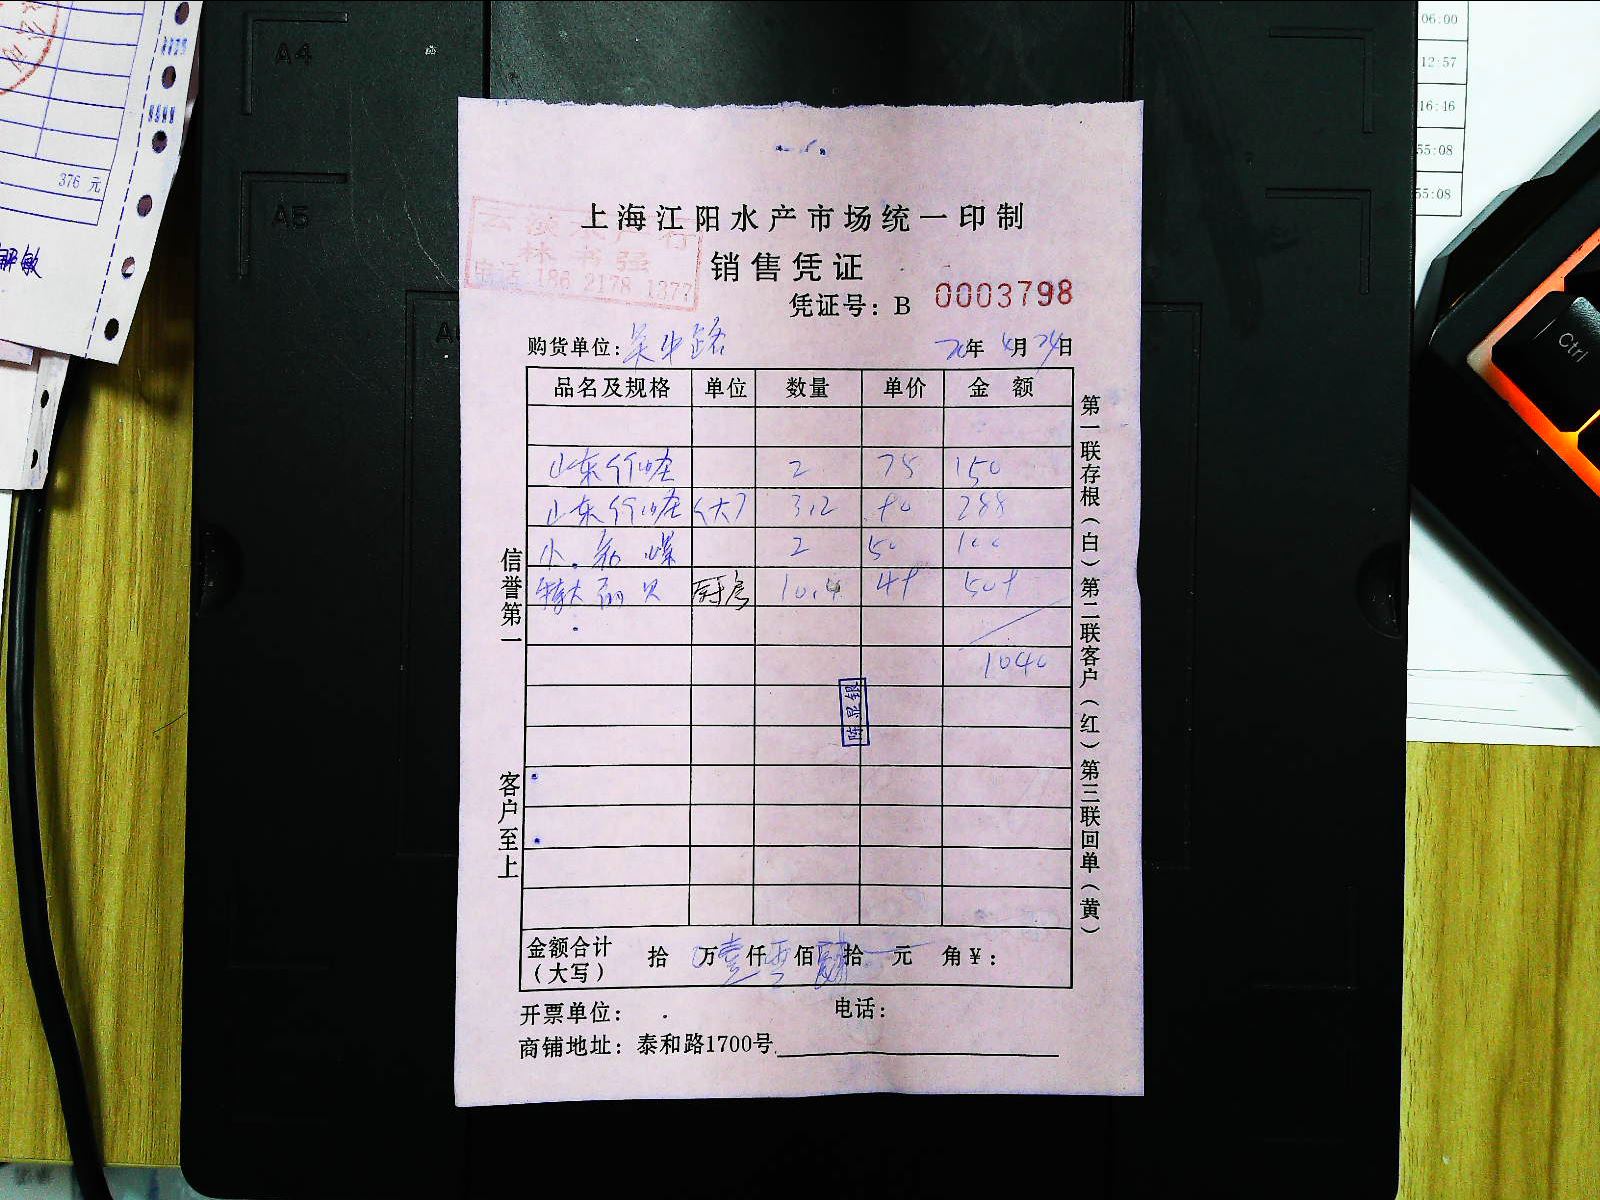 A4
A5
376 元
06:00
12:57
16:46
55:08
55:08
Ctrl
上海江阳水产市场统一印制
林书强
电话 186 2178 1377
销售凭证
凭证号：B 0003798
购货单位：吴中路 20年 4月 24日
品名及规格 单位 数量 单价 金额
山东竹蛏 2 75 150
山东竹蛏 (大) 3.2 90 288
2 50 100
厨房 10.4
1040
陈显银
信誉第一
客户至上
第一联存根（白）第二联客户（红）第三联回单（黄）
金额合计（大写） 拾 万壹仟零佰肆拾 元 角￥：
开票单位： 电话：
商铺地址：泰和路1700号